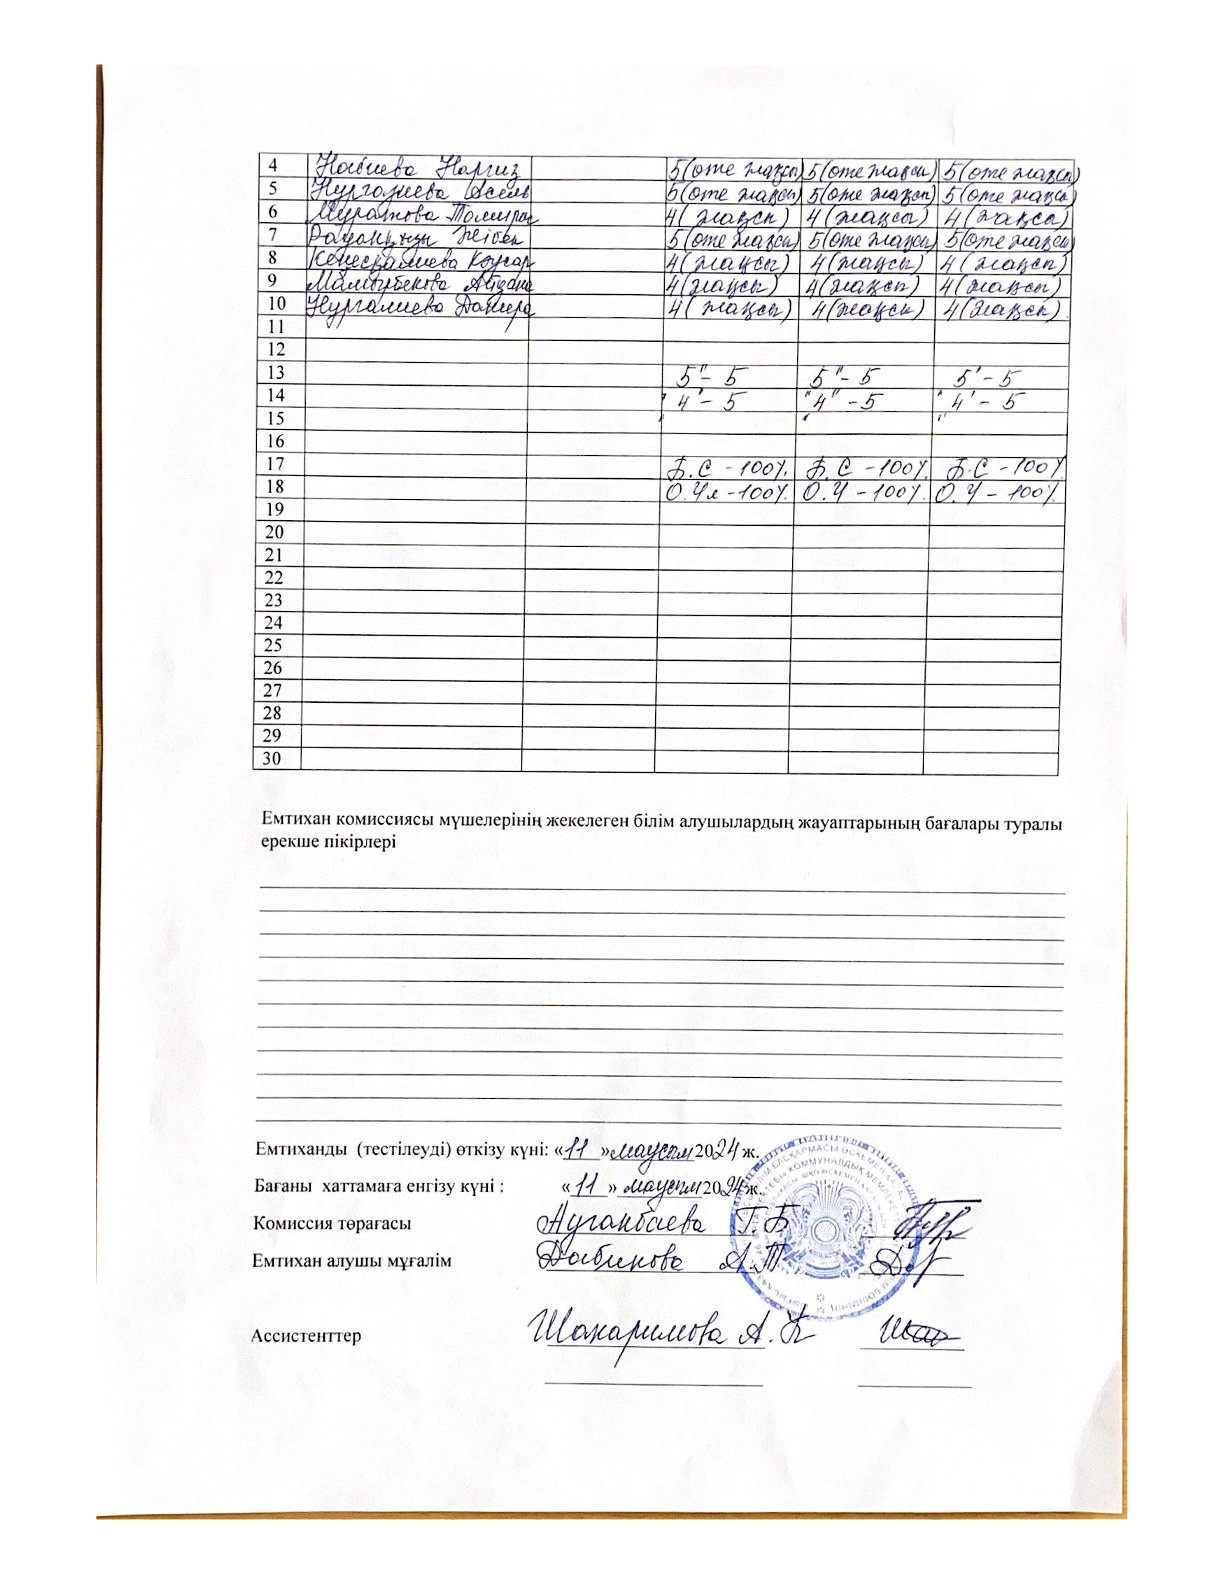 4 Набиева Наргиз 5(өте жақсы) 5(өте жақсы) 5(өте жақсы)
5 Нургазиева Асель 5(өте жақсы) 5(өте жақсы) 5(өте жақсы)
6 Муратова Томирис 4(жақсы) 4(жақсы) 4(жақсы)
7 Жібек 5(өте жақсы) 5(өте жақсы) 5(өте жақсы)
8 Кеңесқалиева Кәусар 4(жақсы) 4(жақсы) 4(жақсы)
9 Мамырбекова 4(жақсы) 4(жақсы) 4(жақсы)
10 Нургалиева Данира 4(жақсы) 4(жақсы) 4(жақсы)
11
12
13 5"- 5 5"- 5 5'- 5
14 "4"- 5 "4"- 5 "4'- 5
15
16
17 Б.С - 100% Б.С - 100% Б.С - 100%
18 О.Үл - 100% О.Ү - 100% О.Ү - 100%
19
20
21
22
23
24
25
26
27
28
29
30
Емтихан комиссиясы мүшелерінің жекелеген білім алушылардың жауаптарының бағалары туралы
ерекше пікірлері
Емтиханды (тестілеуді) өткізу күні: «11» маусым 2024 ж.
Бағаны хаттамаға енгізу күні : «11» маусым 2024 ж.
Комиссия төрағасы Ауганбаева Г.Б
Емтихан алушы мұғалім Дабинова А.Т
Ассистенттер Шакаримова А.К